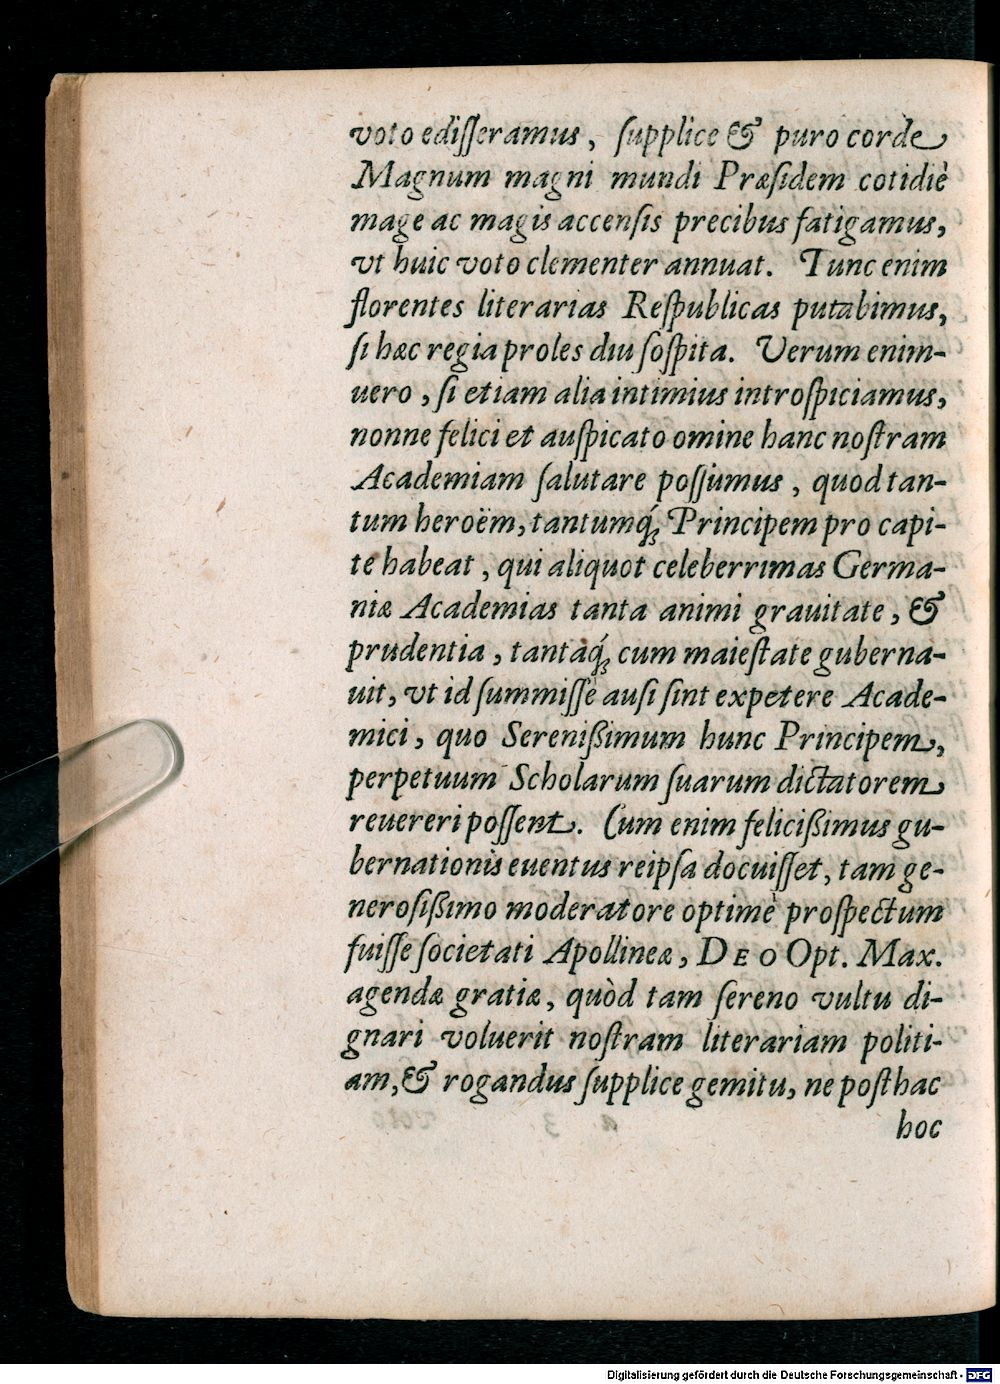 voto edisſeramus, ſupplice & puro corde
Magnum magni mundi Præſidem cotidiè
mage ac magis accenſis precibus fatigamus,
vt huic voto clementer annuat. Tunc enim
florentes literarias Reſpublicas putabimus,
ſi hæc regia proles diu ſoſpita. Verum enim-
uero, ſi etiam alia intimius introſpiciamus,
nonne felici et auſpicato omine hanc noſtram
Academiam ſalutare poſſumus, quod tan-
tum heroëm, tantumq́ꝫ Principem pro capi-
te habeat, qui aliquot celeberrimas Germa-
niæ Academias tanta animi grauitate, &
prudentia, tantaq́ꝫ cum maieſtate guberna-
uit, vt id ſummiſſè auſi ſint expetere Acade-
mici, quo Sereniſſimum hunc Principem,
perpetuum Scholarum ſuarum dictatorem
reuereri poſſent. Cum enim feliciſſimus gu-
bernationis euentus reipſa docuiſſet, tam ge-
neroſiſſimo moderatore optimè proſpectum
fuiſſe ſocietati Apollineæ, DEO Opt. Max.
agendæ gratiæ, quòd tam ſereno vultu di-
gnari voluerit noſtram literariam politi-
am, & rogandus ſupplice gemitu, ne poſthac
hoc
Digitalisierung gefördert durch die Deutsche Forschungsgemeinschaft - DFG